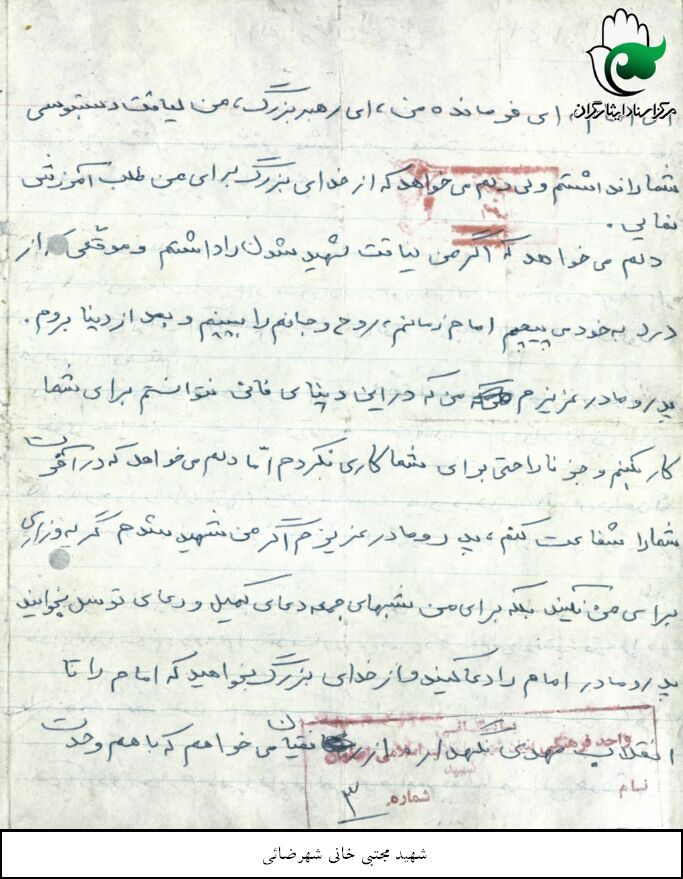 مرکز اسناد ایثارگران
ای امام، ای فرمانده من، ای رهبر بزرگ، من لیاقت دستبوسی
شما را نداشتم ولی دلم می‌خواهد که از خدای بزرگ برای من طلب آمورزش
نمایی.
دلم می‌خواهد که اگر من لیاقت شهید شدن را داشتم و موقعی که از
درد به خود می پیچم امام زمانم، روح و جانم را ببینم و بعد از دنیا بروم.
پدر و مادر عزیزم من که در این دنیای فانی نتوانستم برای شما
کار بکنم و جز ناراحتی برای شما کاری نکردم امّا دلم می‌خواهد که در آخرت
شما را شفاعت کنم، پدر و مادر عزیزم اگر من شهید شدم گریه و زاری
برای من نکنید بلکه برای من شبهای جمعه دعای کمیل و دعای توسل بخوانید
پدر و مادر امام را دعا کنید و از خدای بزرگ بخواهید که امام را تا
انقلاب مهدی نگهدار و از می خواهم که با هم وحدت
واحد فرهنگی
شهید
بنام
شماره ۳
شهید مجتبی خانی شهرضائی